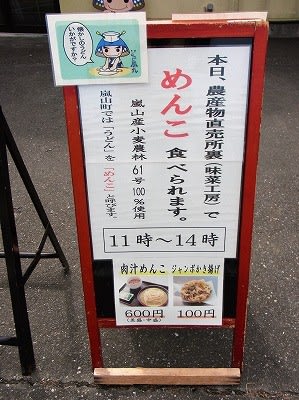 懐かしのうどん
いかがですか？
本日、農産物直売所裏「味菜工房」で
めんこ 食べられます。
嵐山産小麦農林61号100％使用
嵐山町では「うどん」を「めんこ」と呼びます。
11時～14時
肉汁めんこ
600円
ジャンボかき揚げ
100円